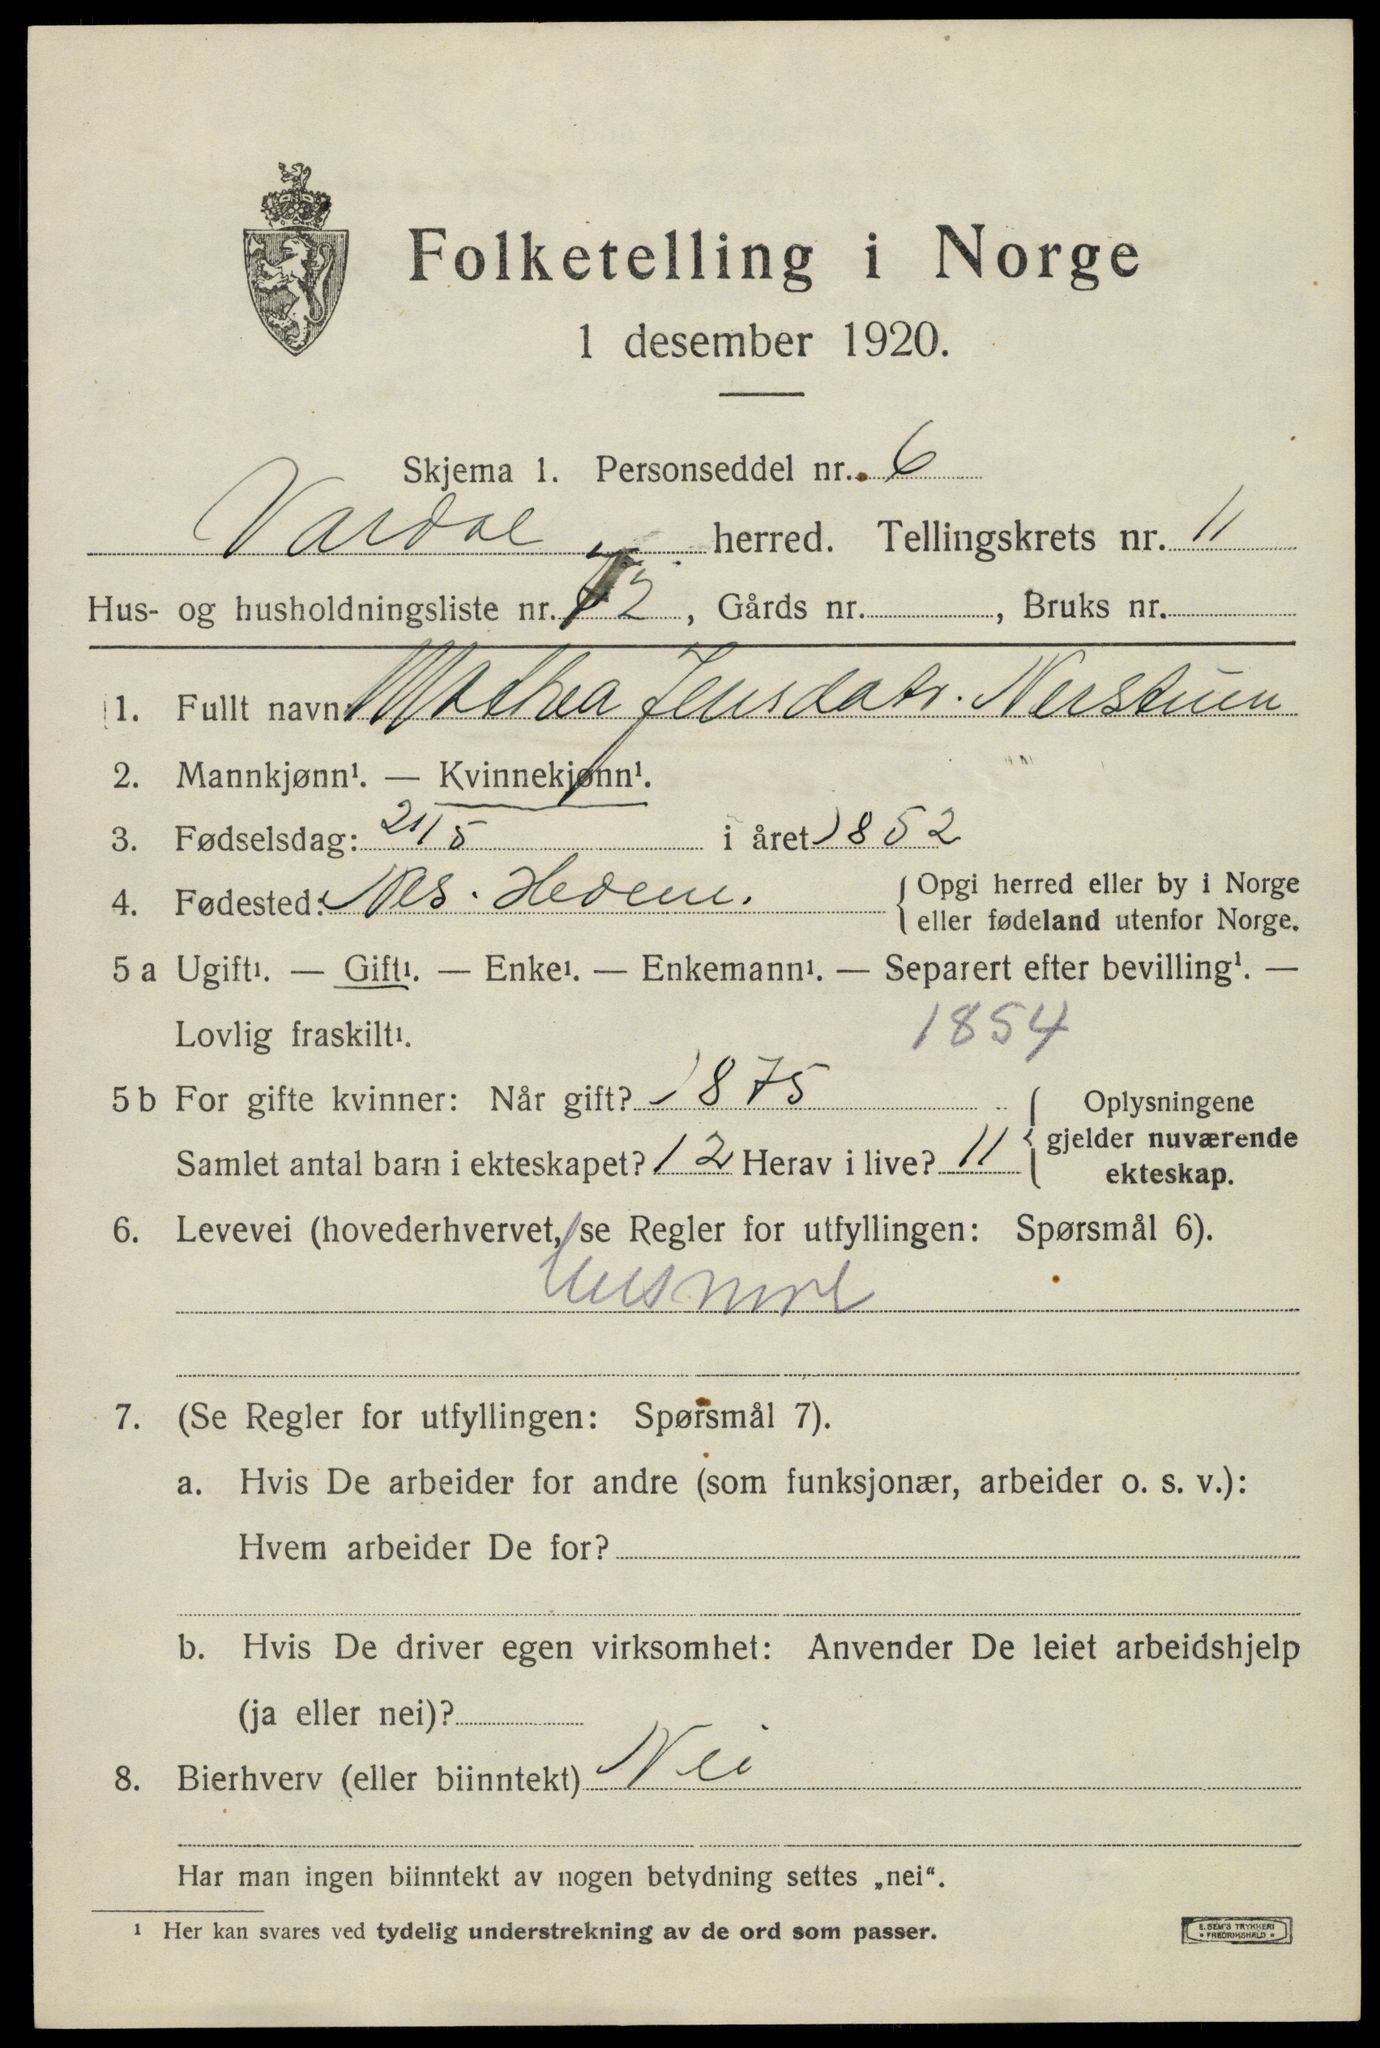 Folketelling i Norge
1 desember 1920.
Skjema 1. Personseddel nr. 6
Vardal herred. Tellingskrets nr. 11
Hus- og husholdningsliste nr. 72, Gårds nr. , Bruks nr.
1. Fullt navn: Mathea Jensdatr. Nerstuen
2. Mannkjønn¹. — Kvinnekjønn¹.
3. Fødselsdag: 21/5 i året 1852
4. Fødested: Nes. Hedem. { Opgi herred eller by i Norge
eller fødeland utenfor Norge.
5 a Ugift¹. — Gift¹. — Enke¹. — Enkemann¹. — Separert efter bevilling¹. —
Lovlig fraskilt¹. 1854
5 b For gifte kvinner: Når gift? 1875 { Oplysningene
gjelder nuværende
Samlet antal barn i ekteskapet? 12 Herav i live? 11
ekteskap.
6. Levevei (hovederhvervet, se Regler for utfyllingen: Spørsmål 6).
7. (Se Regler for utfyllingen: Spørsmål 7).
a. Hvis De arbeider for andre (som funksjonær, arbeider o. s. v.):
Hvem arbeider De for?
b. Hvis De driver egen virksomhet: Anvender De leiet arbeidshjelp
(ja eller nei)?
8. Bierhverv (eller biinntekt) Nei
Har man ingen biinntekt av nogen betydning settes „nei“.
¹ Her kan svares ved tydelig understrekning av de ord som passer.
E. SEM'S TRYKKERI
FREDRIKSHALD